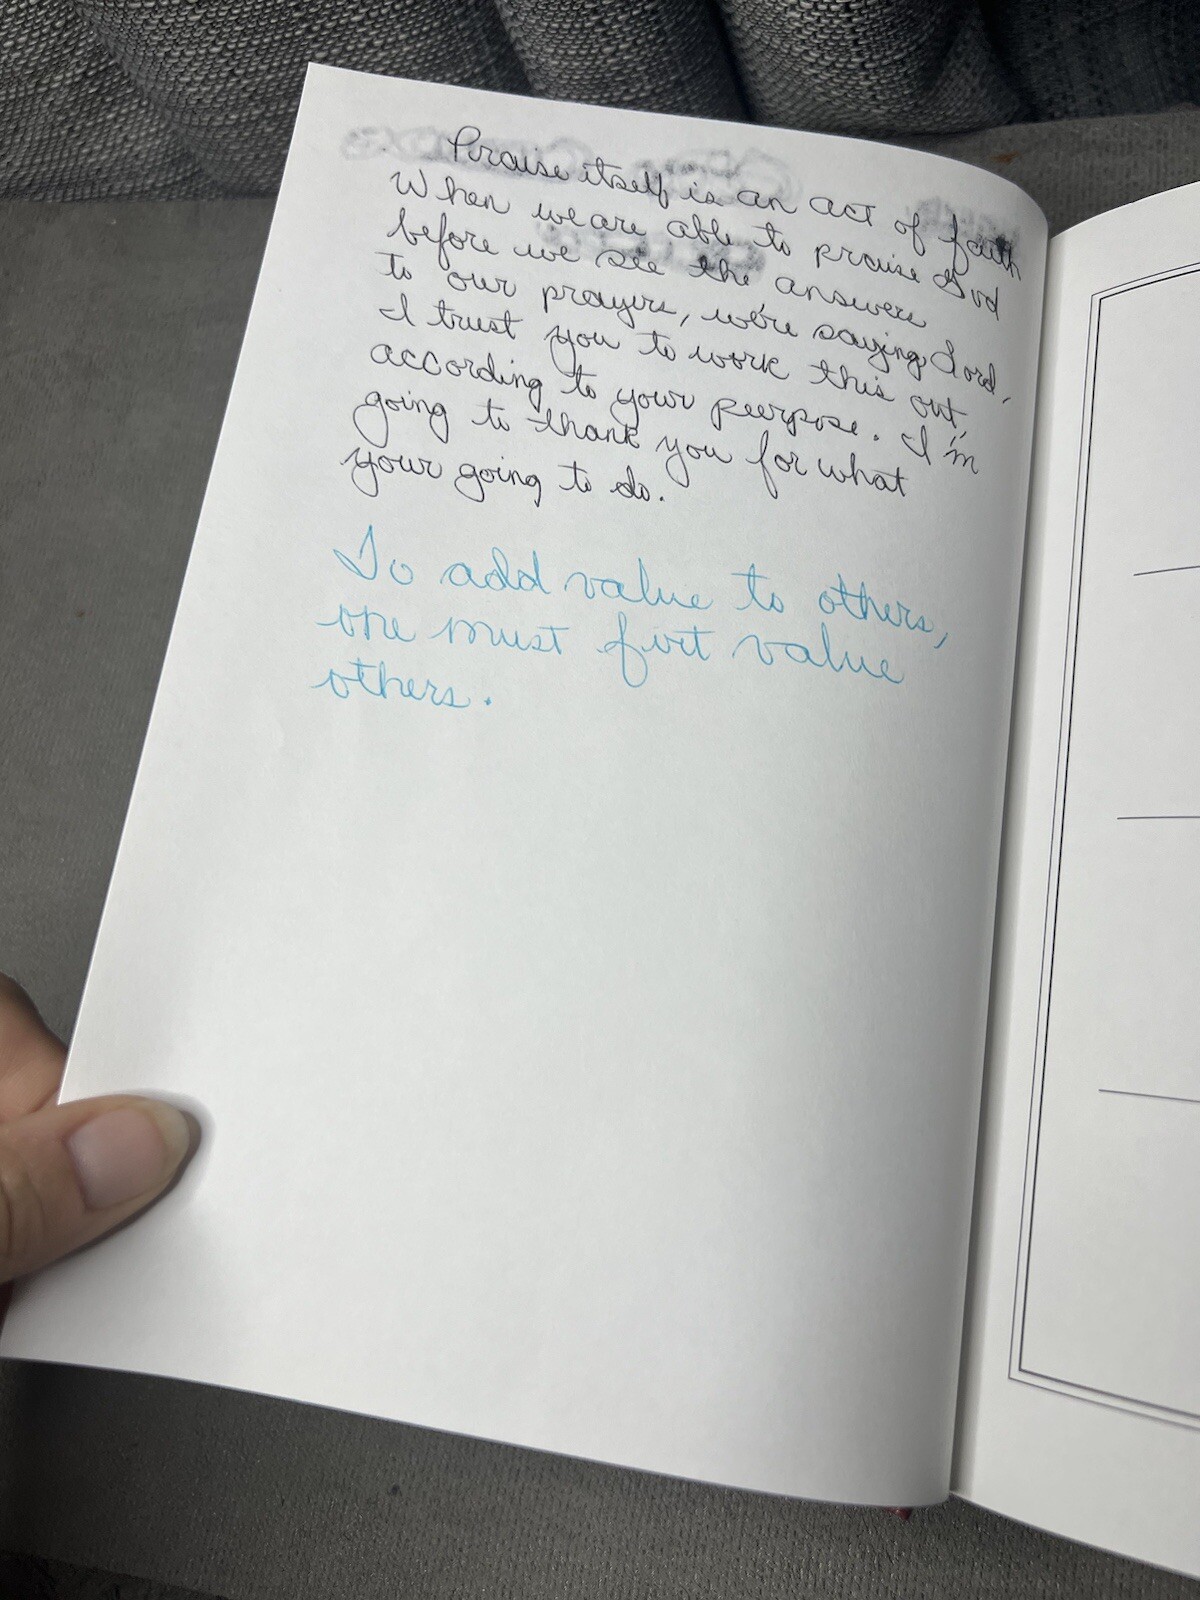 Praise itself is an act of faith
When we are able to praise God
before we see the answers
to our prayers, we're saying Lord,
I trust you to work this out,
according to your purpose. I'm
going to thank you for what
your going to do.
To add value to others,
one must firt value
others.